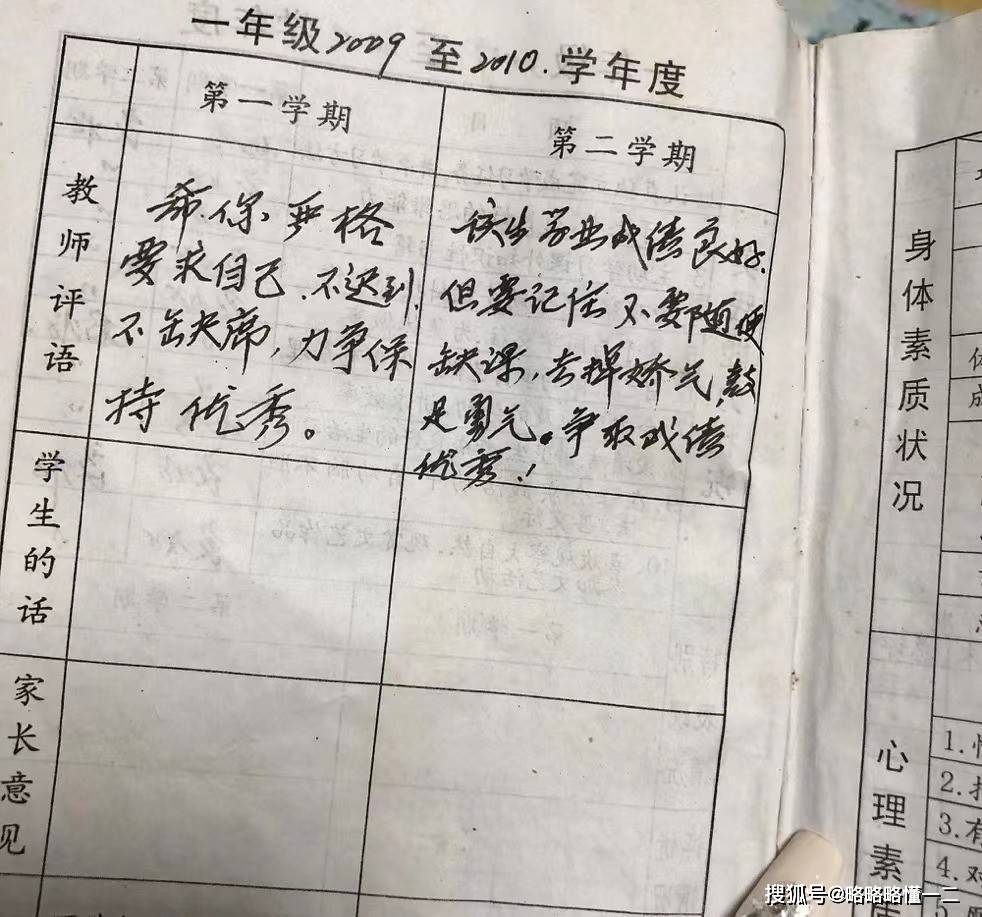 一年级2009至2010.学年度
第一学期
第二学期
教师评语
希你严格
要求自己.不迟到.
不缺席,力争保
持优秀。
该生学业成绩良好.
但要记住不要随便
缺课,去掉娇气,鼓
足勇气。争取成绩
优秀!
学生的话
家长意见
身体素质状况
心理素
1.
2.
3.有
4.对
搜狐号@略略略懂一二